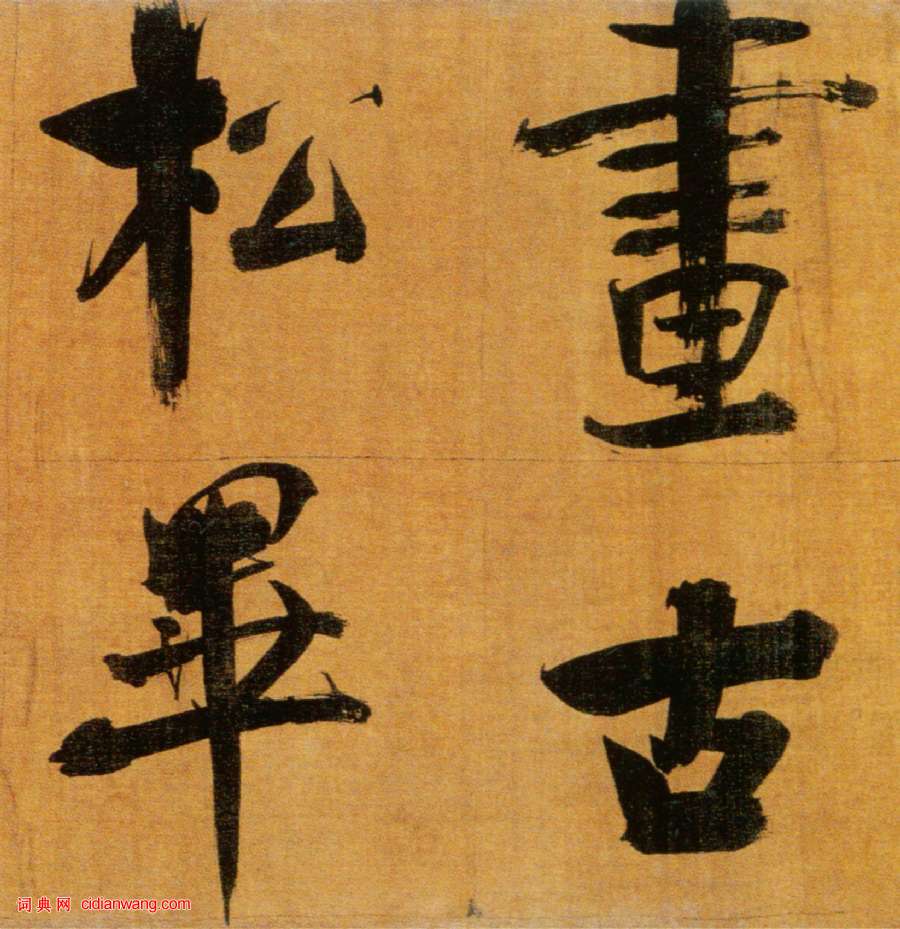 畫古
松畢
词典网 cidianwang.com